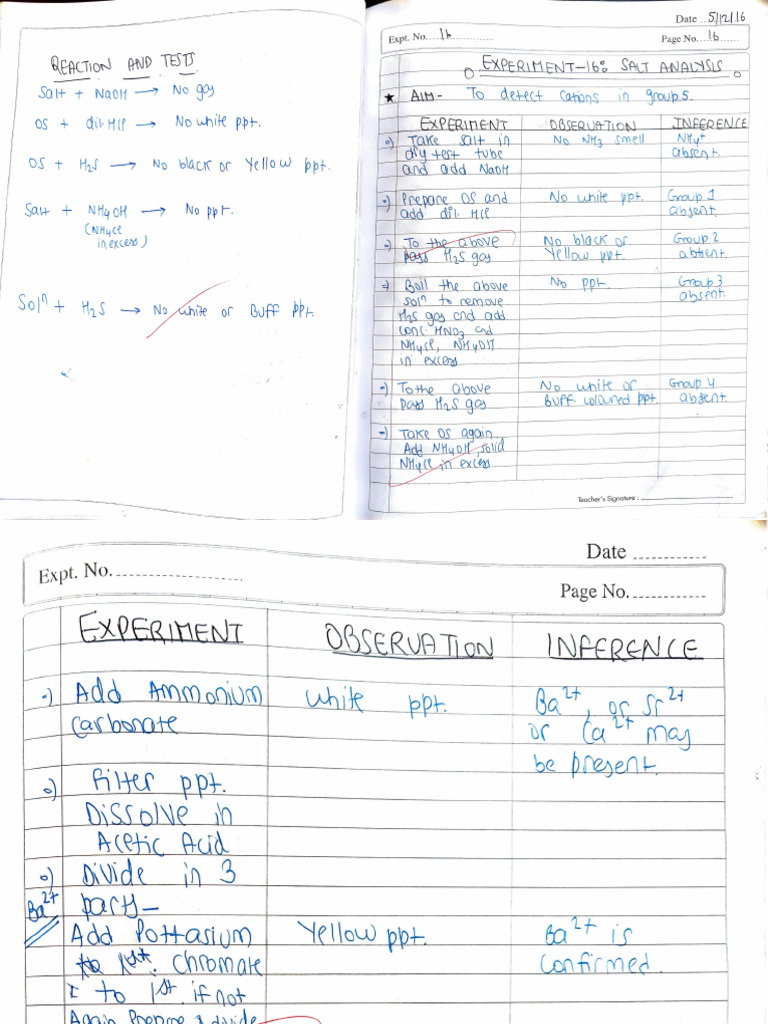 REACTION AND TESTS
Salt + NaOH → No gas
OS + dil. HCl → No white ppt.
OS + H2S → No black or Yellow ppt.
Salt + NH4OH → No ppt.
(NH4Cl
in excess)
Solⁿ + H2S → No white or Buff ppt.
Date 5/12/16
Expt. No. 16
Page No. 16
EXPERIMENT-16: SALT ANALYSIS
★ AIM- To detect cations in group 5.
EXPERIMENT OBSERVATION INFERENCE
Take salt in No NH3 smell NH4+
dry test tube absent.
and add NaOH
Prepare OS and No white ppt. Group 1
add dil. HCl absent.
To the above No black or Group 2
pass H2S gas Yellow ppt. absent.
Boil the above No ppt. Group 3
solⁿ to remove absent.
H2S gas and add
conc. HNO3 and
NH4Cl, NH4OH
in excess
To the above No white or Group 4
pass H2S gas Buff coloured ppt. absent.
Take OS again
Add NH4OH, solid
NH4Cl in excess
Teacher's Signature :
Date
Expt. No.
Page No.
EXPERIMENT OBSERVATION INFERENCE
Add Ammonium white ppt. Ba2+, or Sr2+
Carbonate or Ca2+ may
be present.
Filter ppt.
Dissolve in
Acetic Acid
Divide in 3
Ba2+ parts-
Add Pottasium Yellow ppt. Ba2+ is
1st. chromate confirmed.
to 1st. if not
Again Prepare & divide